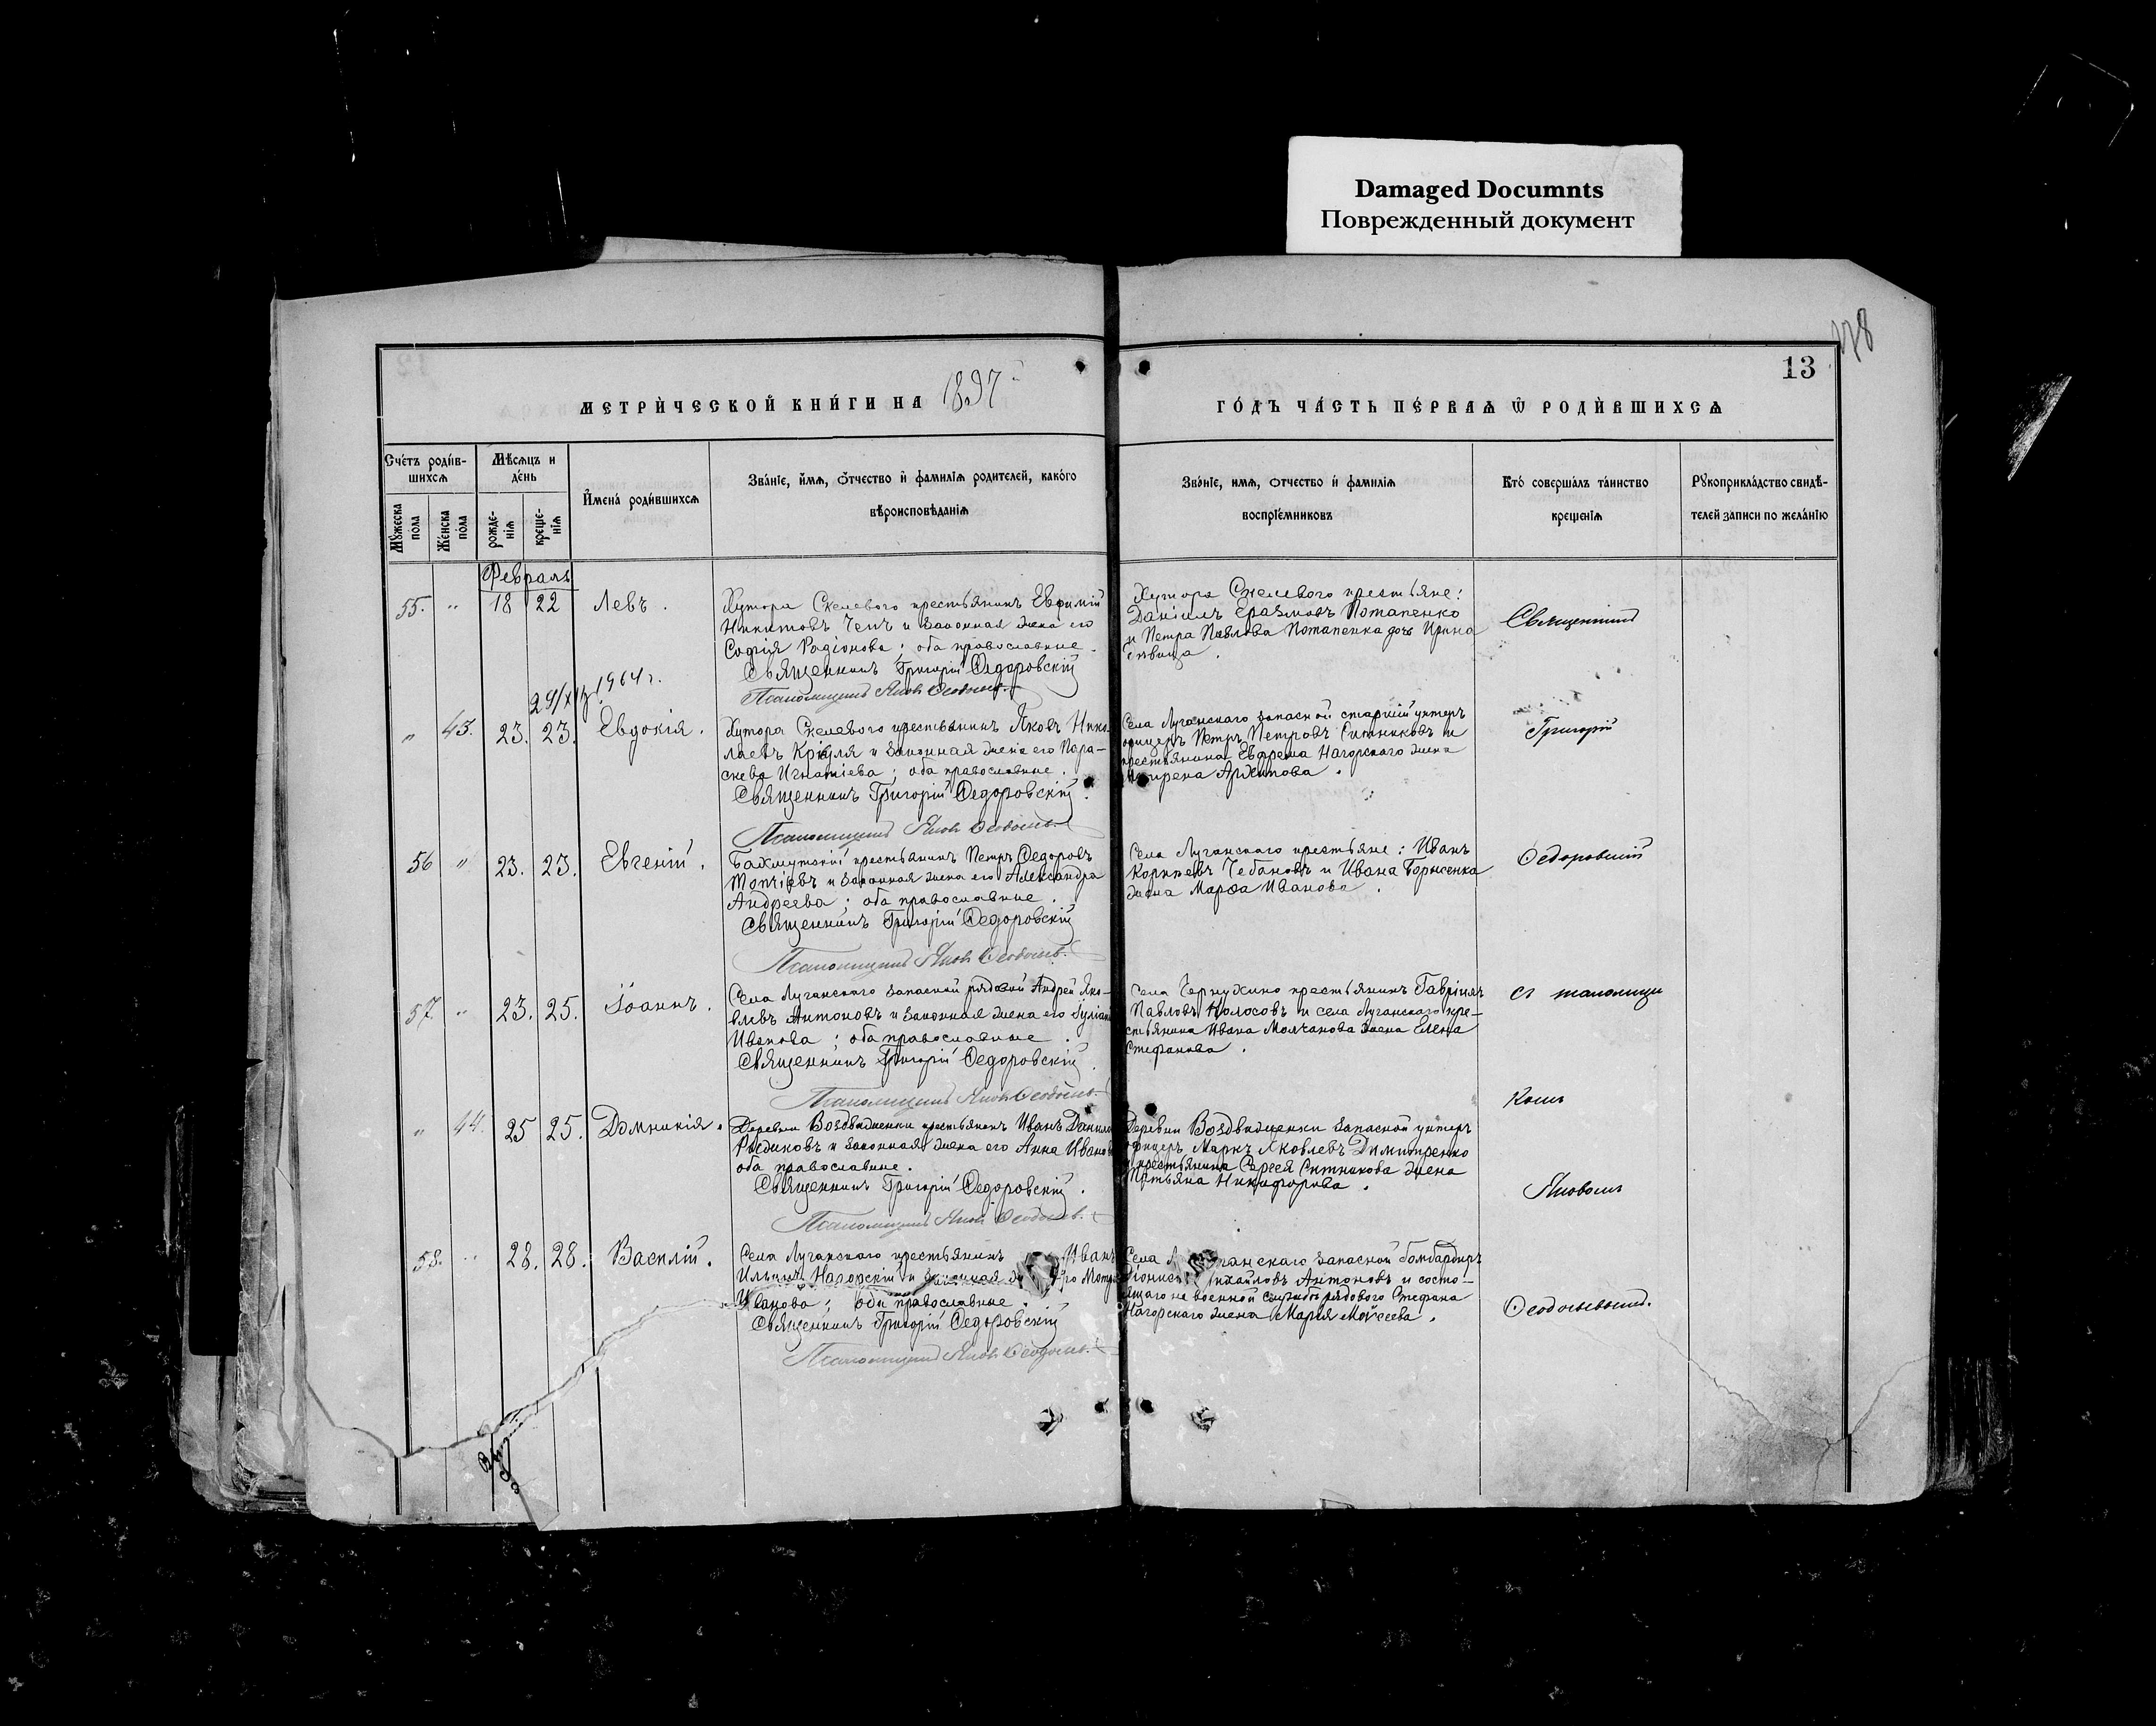 Damaged Documnts
Поврежденный документ
178
13
МЕТРИ́ЧЕСКОЙ КНИ́ГИ НА 1897
ГО́ДЪ ЧА́СТЬ ПЕ́РВАѦ Ѿ РОДИ́ВШИХСѦ
Сче́тъ роди́в-
шихсѧ
Мѣ́сѧцъ и
де́нь
Мꙋ́жеска
по́ла
Же́нска
по́ла
рожде-
нїѧ
креще-
нїѧ
И҆мена́ роди́вшихсѧ
Зва́нїе, и҆́мѧ, ѻ҆́тчество и҆ фамилїѧ родителей, како́го
вѣроисповѣ́данїѧ
Зва́нїе, имѧ, ѻтчество и҆ фамилїѧ
воспрїе́мниковъ
Кто̀ соверша́лъ та́инство
креще́нїѧ
Рꙋкоприкла́дство свидѣ́-
телей записи по жела́нїю
Февраль
55. " 18 22 Левъ.
Хутора Скелевого крестьянинъ Евфимій
Никитовъ Чепъ и законная жена его
Софія Родіонова; оба православные.
Священникъ Григорій Ѳедоровскій
Псаломщикъ Яковъ Ѳеодосьевъ.
Хутора Скелевого крестьяне:
Даніилъ Еразмовъ Потапенко
и Петра Павлова Потапенка дочь Ирина
дѣвица.
Священникъ
1964 г.
" 43. 23. 23. Евдокія.
Хутора Скелевого крестьянинъ Яковъ Нико-
лаевъ и законная жена его Пара-
скева Игнатіева; оба православные.
Священникъ Григорій Ѳедоровскій.
Псаломщикъ Яковъ Ѳеодосьевъ.
Села Луганскаго запасной старшій унтеръ
офицеръ Петръ Петровъ Ситниковъ и
крестьянина Ефрема Нагорскаго жена
Архипова.
Григорій
56 " 23. 23. Евгеній.
Бахмутскій крестьянинъ Петръ Ѳедоровъ
и законная жена его Александра
Андреева; оба православные.
Священникъ Григорій Ѳедоровскій
Псаломщикъ Яковъ Ѳеодосьевъ.
Села Луганскаго крестьяне: Иванъ
Чебановъ и Ивана Борисенка
жена Марѳа Иванова.
Ѳедоровскій
57 " 23. 25. Іоаннъ.
Села Луганскаго запасной рядовой Андрей Яко-
влевъ Антоновъ и законная жена его Іуліанія
Иванова; оба православные.
Священникъ Григорій Ѳедоровскій.
Псаломщикъ Яковъ Ѳеодосьевъ.
Села Чернухино крестьянинъ Гавріилъ
Павловъ Колосовъ и села Луганскаго кре-
стьянина Ивана Молчанова жена Елена
Стефанова.
съ псаломщи
комъ
" 44. 25 25. Домникія.
Деревни Воздвиженки крестьянинъ Иванъ Данил
и законная жена его Анна Иванова
оба православные.
Священникъ Григорій Ѳедоровскій.
Псаломщикъ Яковъ Ѳеодосьевъ.
Деревни Воздвиженки запасной унтеръ
офицеръ Маркъ Яковлевъ Димитренко
и крестьянина Сергея Ситникова жена
Татьяна Никифорова.
Яковомъ
58. " 28. 28. Василій.
Села Луганскаго крестьянинъ Иванъ
Ильинъ Нагорскій и законная его Мотрона
Иванова; оба православные.
Священникъ Григорій Ѳедоровскій
Псаломщикъ Яковъ Ѳеодосьевъ.
Села Луганскаго запасной бомбардиръ
Діонисій Михайловъ Антоновъ и состо-
ящаго на военной службѣ рядового Стефана
Нагорскаго жена Марія Моисеева.
Ѳеодосьевымъ.